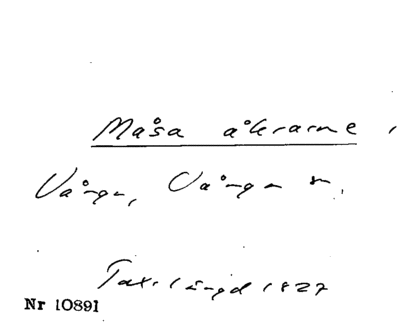 Måsa åkrarne,
Vånga, Vånga sn.
Taxl.längd 1827
Nr 10891